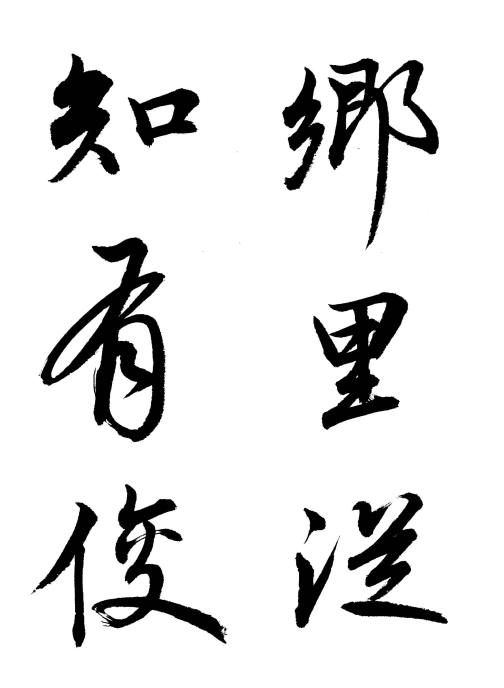 鄉里從
知有俊